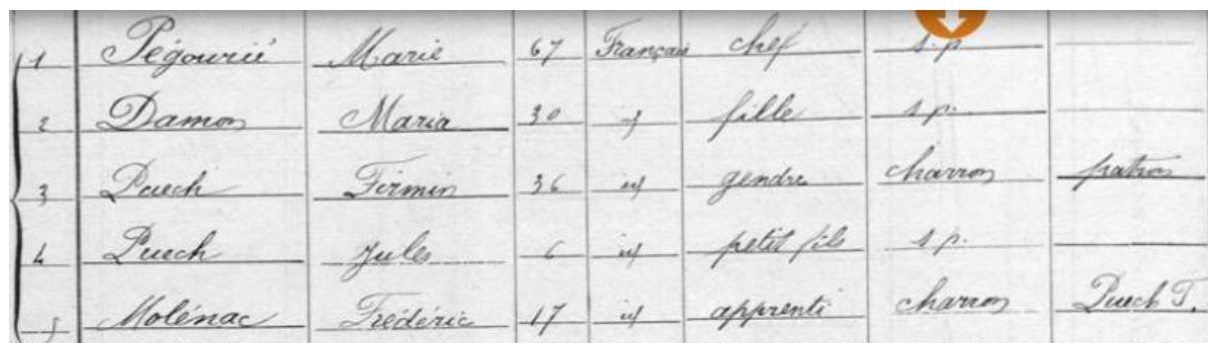 1 Pégourié Marie 67 Français chef s.p.
2 Damon Maria 30 id fille s.p.
3 Puech Firmin 36 id gendre charron patron
4 Puech Jules 6 id petit fils s.p.
5 Molénac Frédéric 17 id apprenti charron Puech F.